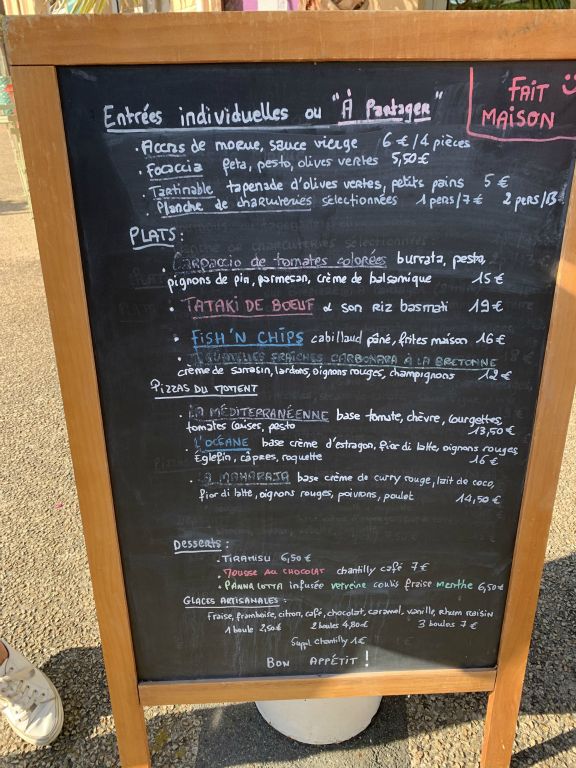 Entrées individuelles ou "À Partager"
FAIT
MAISON
• Accras de morue, sauce vierge 6 € / 4 pièces
• Focaccia feta, pesto, olives vertes 5,50 €
• Tartinable tapenade d'olives vertes, petits pains 5 €
• Planche de charcuteries sélectionnées 1 pers / 7 € 2 pers / 13
PLATS :
• Carpaccio de tomates colorées burrata, pesto,
pignons de pin, parmesan, crème de balsamique 15 €
• TATAKI DE BOEUF & son riz basmati 19 €
• FISH 'N CHIPS cabillaud pané, frites maison 16 €
• TAGLIATELLES FRAÎCHES CARBONARA À LA BRETONNE
crème de sarrasin, lardons, oignons rouges, champignons 12 €
PIZZAS DU MOMENT
• LA MÉDITERRANÉENNE base tomate, chèvre, courgettes,
tomates cerises, pesto 13,50 €
• L'OCÉANE base crème d'estragon, fior di latte, oignons rouges
Églefin, câpres, roquette 16 €
• LA MAHARAJA base crème de curry rouge, lait de coco,
fior di latte, oignons rouges, poivrons, poulet 14,50 €
Desserts :
• TIRAMISU 6,50 €
• MOUSSE AU CHOCOLAT chantilly café 7 €
• PANNA COTTA infusée verveine coulis fraise menthe 6,50 €
GLACES ARTISANALES :
Fraise, framboise, citron, café, chocolat, caramel, vanille, rhum raisin
1 boule 2,50 € 2 boules 4,80 € 3 boules 7 €
Suppl chantilly 1 €
BON APPÉTIT !